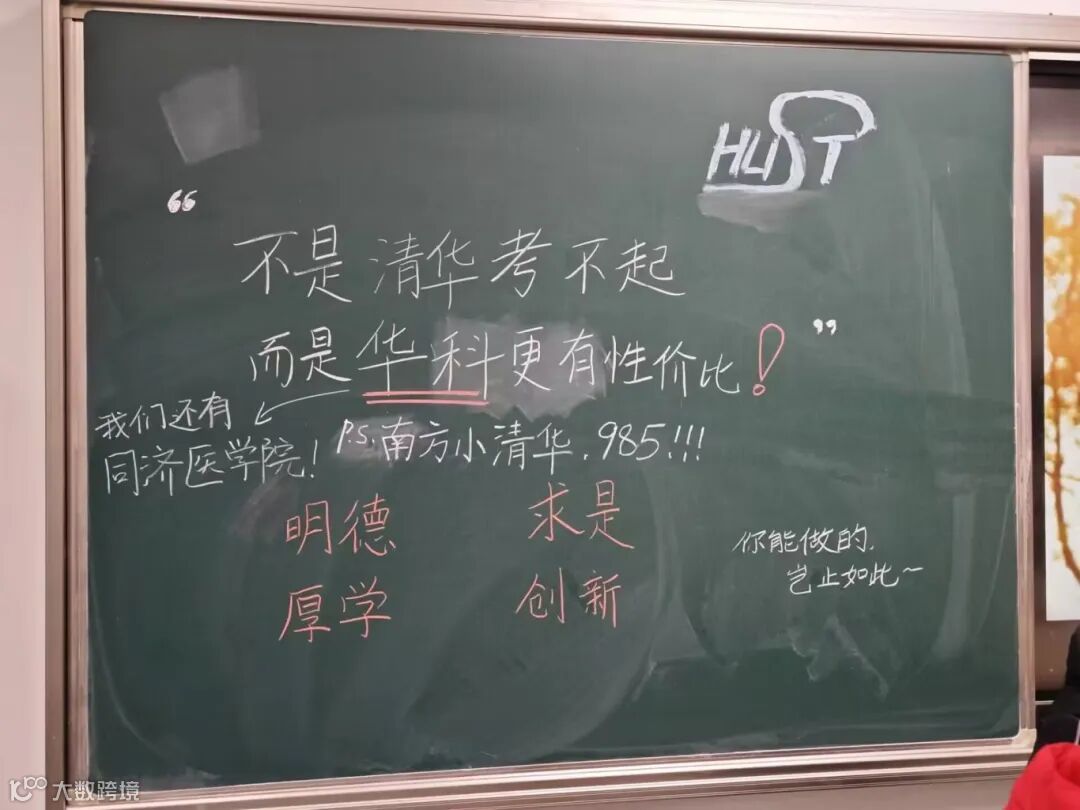 HUST
“
不是清华考不起
而是华科更有性价比！”
我们还有
同济医学院！
P.S.南方小清华.985!!!
明德 求是
厚学 创新
你能做的.
岂止如此~
大数跨境